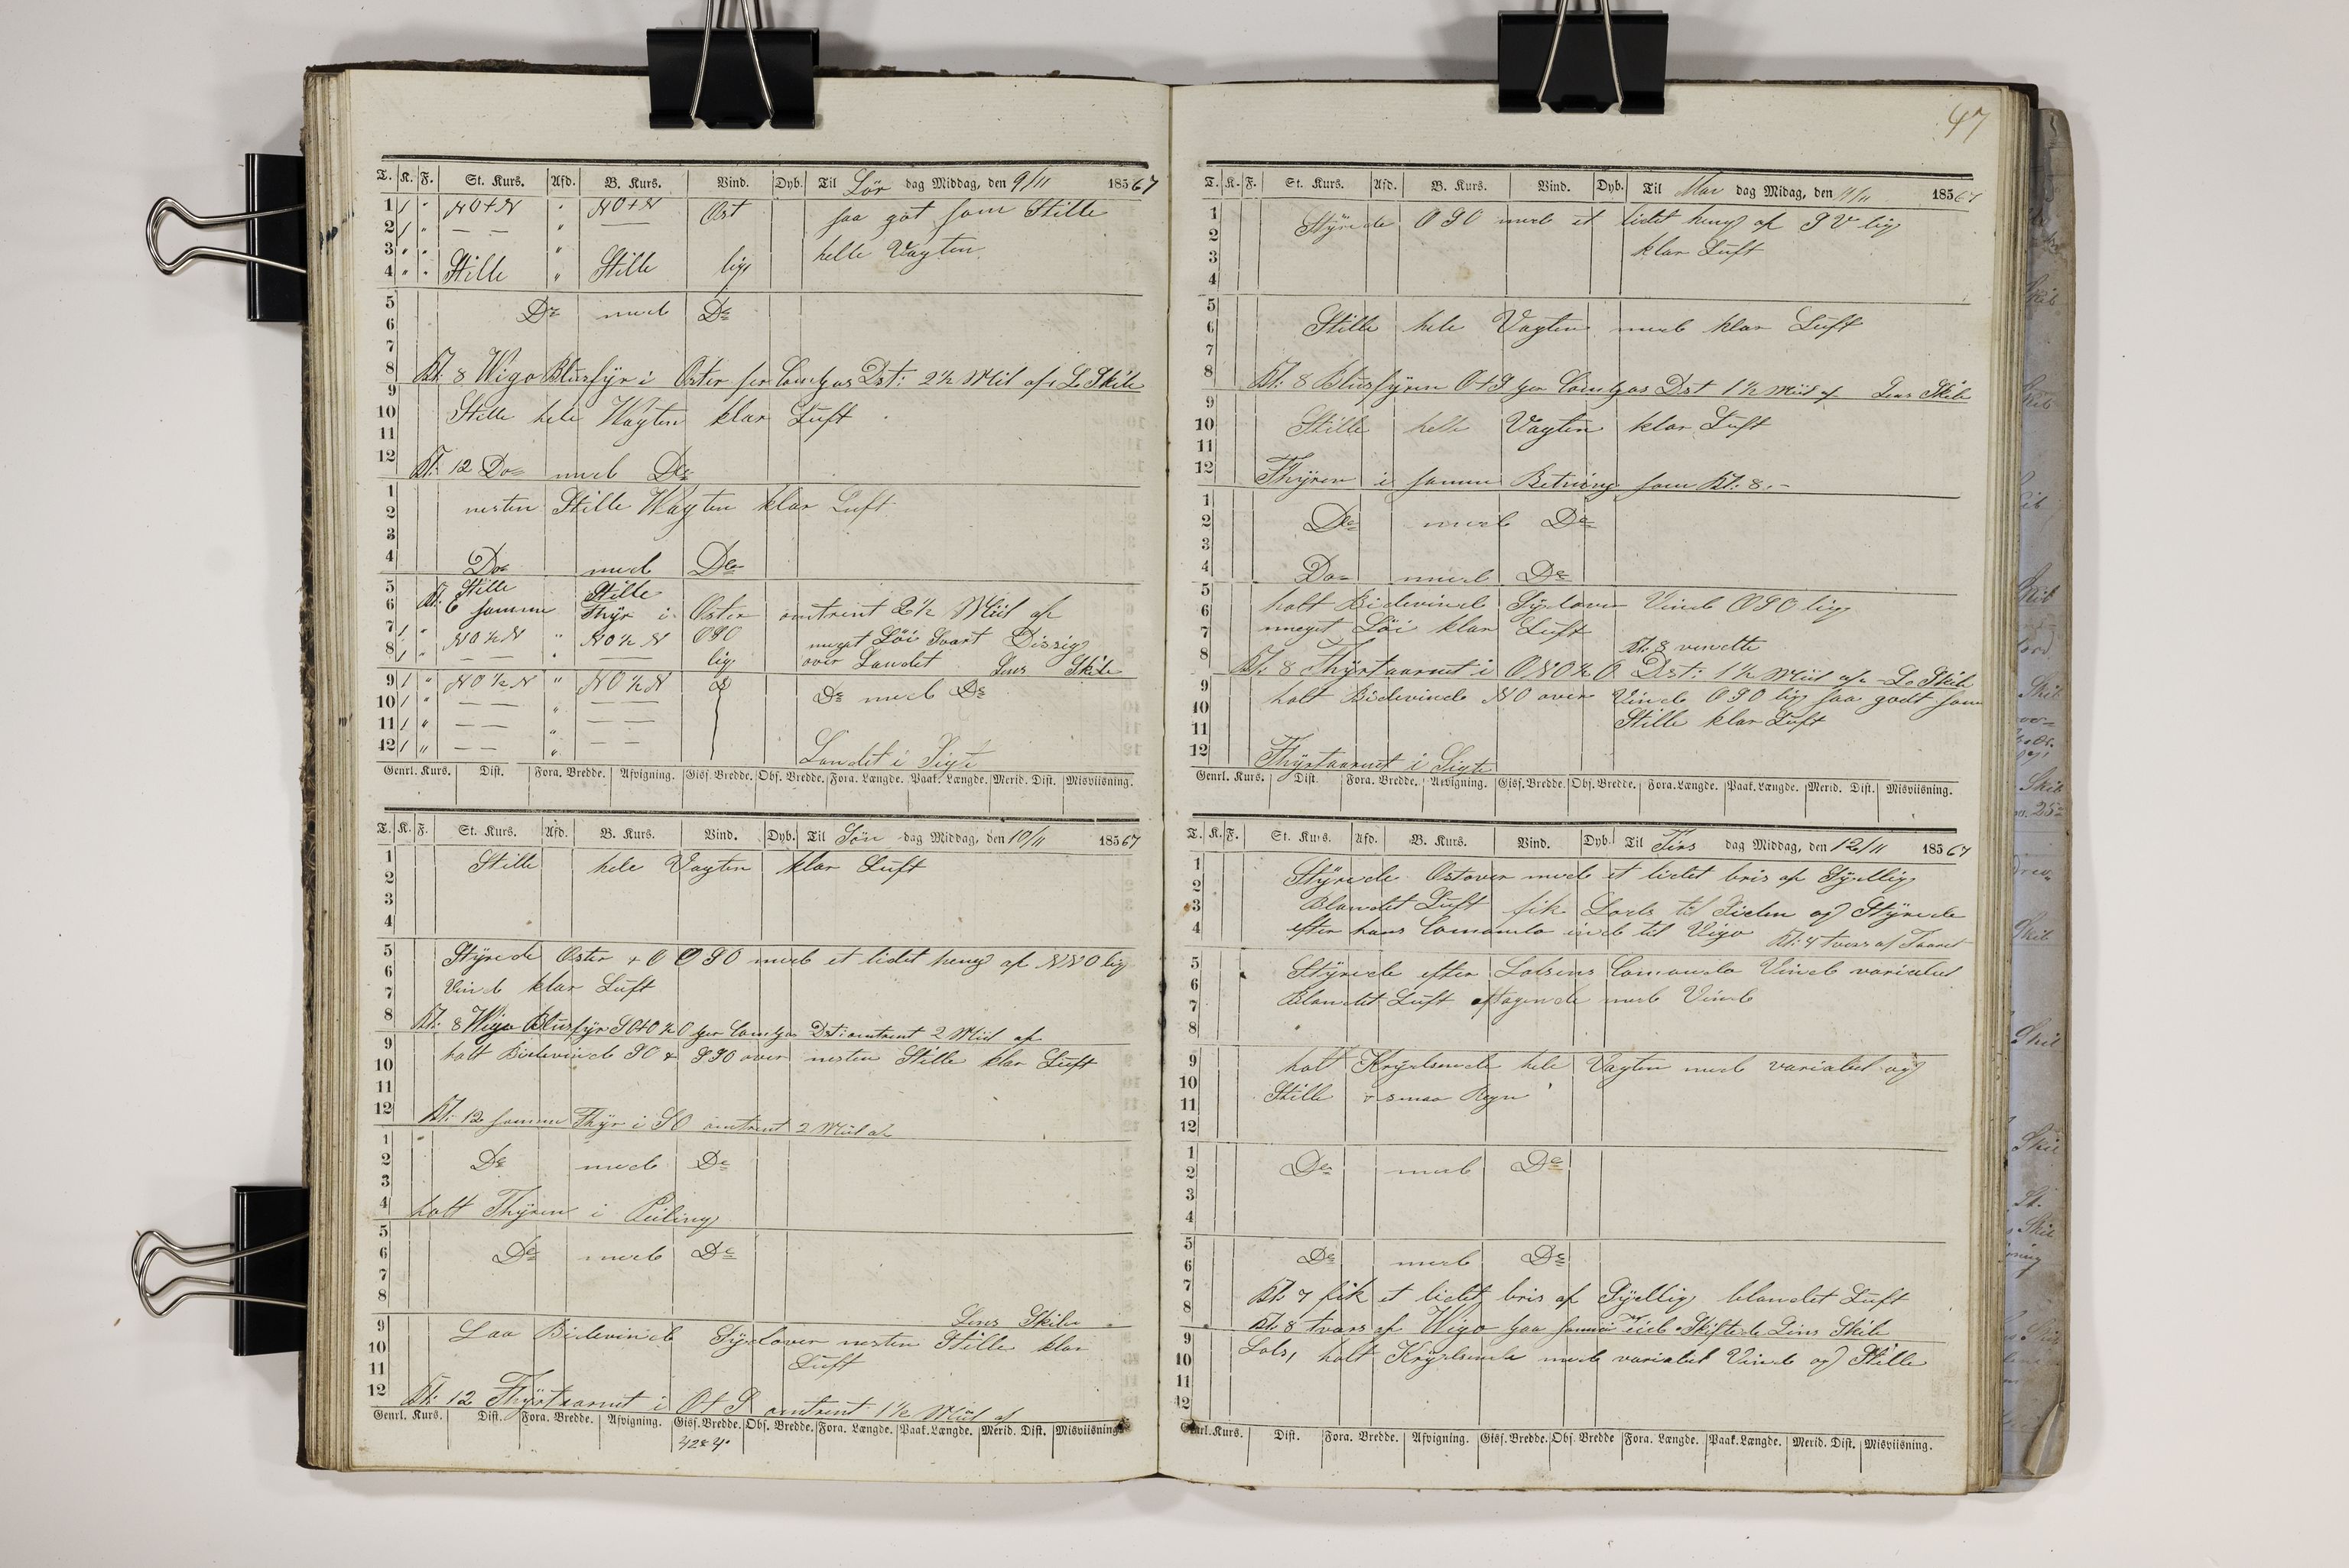 47
T. K. F. St. Kurs. Afd. B. Kurs. Vind. Dyb. Til Lör dag Middag, den 9/11 1856 67
1 1 " NO+N " NO+N Öst saa got som Stille
2 1 " — — " —
3 " " " helle Vagten
4 " " Stille " Stille lig
5
6 Do med Do
7
8 Kl: 8 Wigo Blusfyr i Oster per Compas Dst: 2½ Miil af L. Skibe
9
10 Stille hele Wagten klar Luft
11
12 Kl: 12 Do med Do
1
2 nesten Stille Wagten klar Luft
3
4 Do med Do
5 Stille Stille
6 Kl: 6 samme Fhyr i Oster omtrent 2½ Miil af
7 1 " NO½N " NO½N OSO meget Löi Svart Dissig
8 1 " — — " — lig over Landet Lens Skibe
9 1 " NO½N " NO½N Do med Do
10 1 " — — " — —
11 1 " — — " — —
12 1 " — — " — — Landet i Sigte
Genrl. Kurs. Dist. Fora. Bredde. Afvigning. Gisf. Bredde. Obs. Bredde. Fora. Længde. Paak. Længde. Merid. Dist. Misviisning.
T. K. F. St. Kurs. Afd. B. Kurs. Vind. Dyb. Til Sön dag Middag, den 10/11 185 67
1 Stille hele Vagten klar Luft
2
3
4
5 Styrede Oster + O OSO med et lidet heng af NNO lig
6
7 Vind klar Luft
8 Kl: 8 Wigo Blusfyr SO+O½O per Compas Dst: omtrent 2 Miil af
9
10 holt Bidevind SO & SSO over nesten Stille klar Luft
11
12 Kl: 12 samme Fhyr i SO omtrent 2 Miil af
1
2 Do med Do
3
4 holt Fhyren i Peiling
5
6 Do med Do
7
8 Lens Skibe
9 Laa Bidevind Sydover nesten Stille klar
10 Luft
11
12 Kl: 12 Fhyrtaarnet i O+S omtrent 1½ Miil af
Genrl. Kurs. Dist. Fora. Bredde. Afvigning. Gisf. Bredde. Obs. Bredde. Fora. Længde. Paak. Længde. Merid. Dist. Misviisning.
T. K. F. St. Kurs. Afd. B. Kurs. Vind. Dyb. Til Man dag Midag, den 11/11 185 67
1 Styrede OSO med et lidet heng af SV lig
2
3 klar Luft
4
5
6 Stille hele Vagten med klar Luft
7
8 Kl: 8 Blusfyren O+S per Compas Dst 1½ Miil af Lens Skibe
9
10 Stille helle Vagten klar Luft
11
12 Fhyren i samme Retning som Kl: 8.-
1
2 Do med Do
3
4 Do med Do
5
6 holt Bidevind Sydover Vind OSO lig
7 meget Löi klar Luft Kl: 8 vendte
8 Kl: 8 Fhyrtaarnet i ONO½O Dst: 1½ Miil af L. Skibe
9 holt Bidevind NO over Vind OSO lig saa godt som
10 Stille klar Luft
11
12 Fhyrtaarnet i Sigte
Genrl. Kurs. Dist. Fora. Bredde. Afvigning. Gisf. Bredde. Obs. Bredde. Fora. Længde. Paak. Længde. Merid. Dist. Misviisning.
T. K. F. St. Kurs. Afd. B. Kurs. Vind. Dyb. Til Tirs dag Middag, den 12/11 185 67
1 Styrede Ostover med et lidet bris af Sydlig
2
3 Blandet Luft fik Lods til Siden og Styrede
4 efter hans Comando ind til Vigo Kl: 4 tvers af Taarnet
5 Styrede efter Lodsens Comando Vind variabel
6
7 Blandet Luft aftagende med Vind
8
9 holt Krydsende hele Vagten med variabel og
10
11 Stille + smaa Regn
12
1
2 Do med Do
3
4
5
6 Do med Do
7 Kl: 7 fik et lidet bris af Sydlig blandet Luft
8 Kl: 8 tvars af Wigo paa samme Tid Skiftede Lens Skibe
9
10 Lods, holt Krydsende med variabel Vind og Stille
11
12
Genrl. Kurs. Dist. Fora. Bredde. Afvigning. Gisf. Bredde. Obs. Bredde Fora. Længde. Paak. Længde. Merid. Dist. Misviisning.